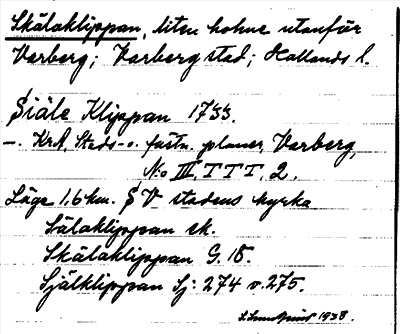 Skälaklippan, liten holme utanför
Varberg; Varberg stad; Hallands l.
Siäle Klippan 1733.
–. KrA, Stads- o. fästn. planer, Varberg,
N:o III, T T T, 2.
Läge 1.6 km. SV stadens kyrka
Sälaklippan ek.
Skälaklippan G. 18.
Själklippan Sj: 274 o. 275.
1938.